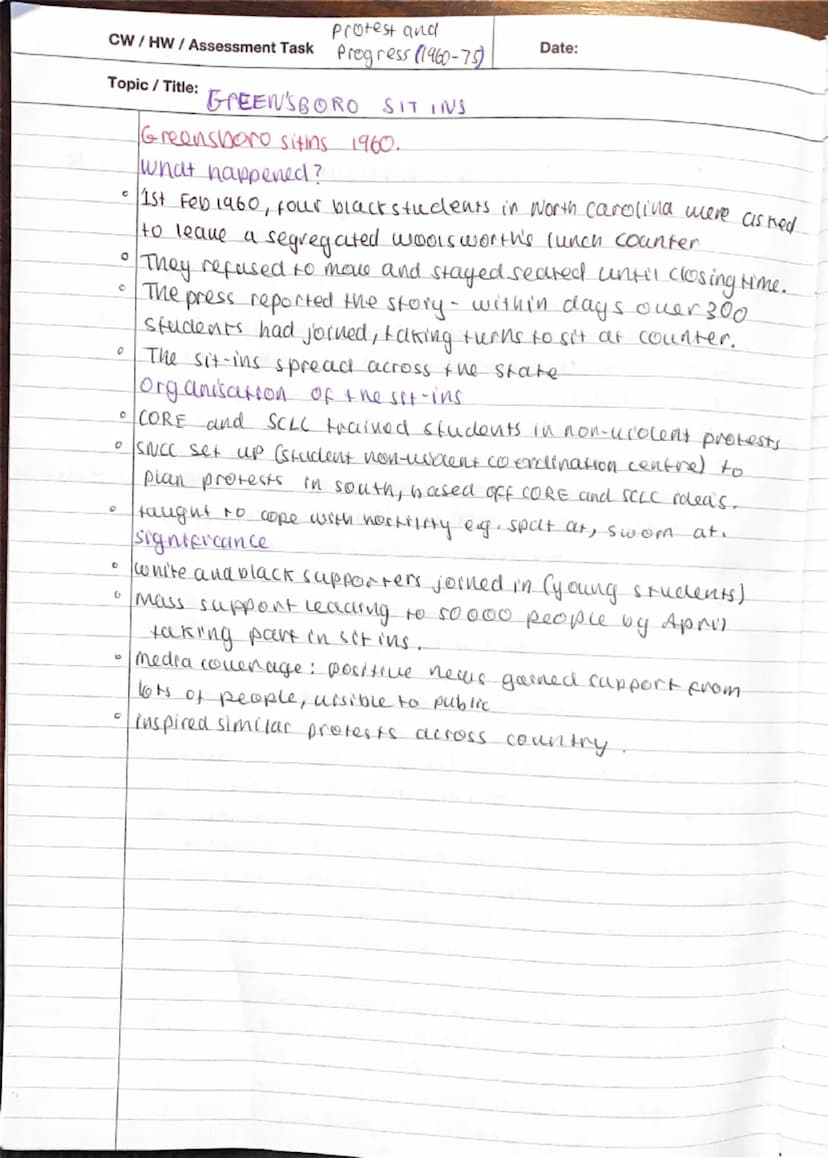 CW / HW / Assessment Task
Protest and
Progress (1960-75)
Date:
Topic / Title: GREENSBORO SIT INS
Greensboro sitins 1960.
What happened?
1st Feb 1960, four black students in North Carolina were asked
to leave a segregated woolsworth's lunch counter
They refused to move and stayed seated until closing time.
The press reported the story - within days over 300
students had joined, taking turns to sit at counter.
The sit-ins spread across the state
Organisation of the sit-ins
CORE and SCLC trained students in non-violent protests
SNCC set up (student non-violent coordination centre) to
plan protests in south, based off CORE and SCLC ideas.
taught to cope with hostility e.g. spat at, sworn at.
significance
white and black supporters joined in (young students)
Mass support leading to 50000 people by April
taking part in sit ins.
Media coverage: positive news gained support from
lots of people, visible to public
inspired similar protests across country.